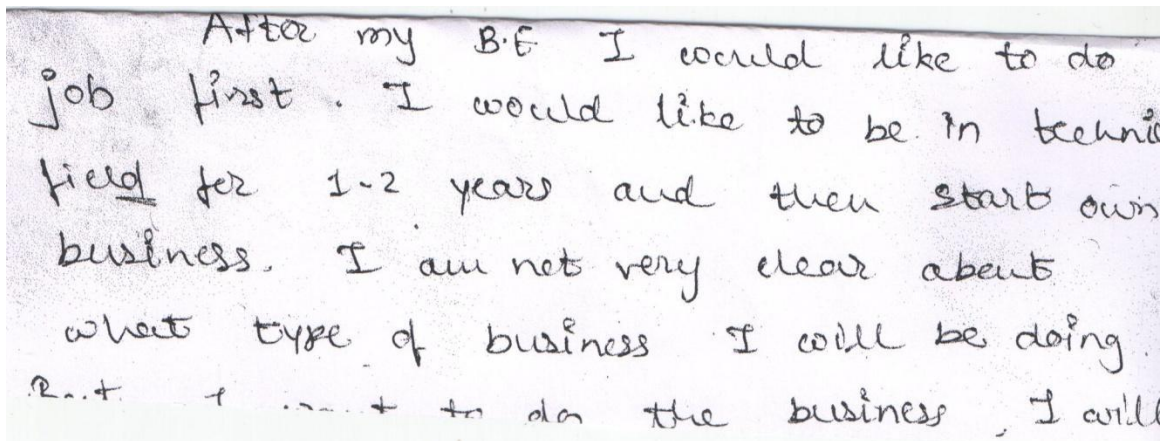 After my B.E I would like to do
job first. I would like to be in technic
field for 1-2 years and then start own
business. I am not very clear about
what type of business I will be doing.
But I to do the business, I will